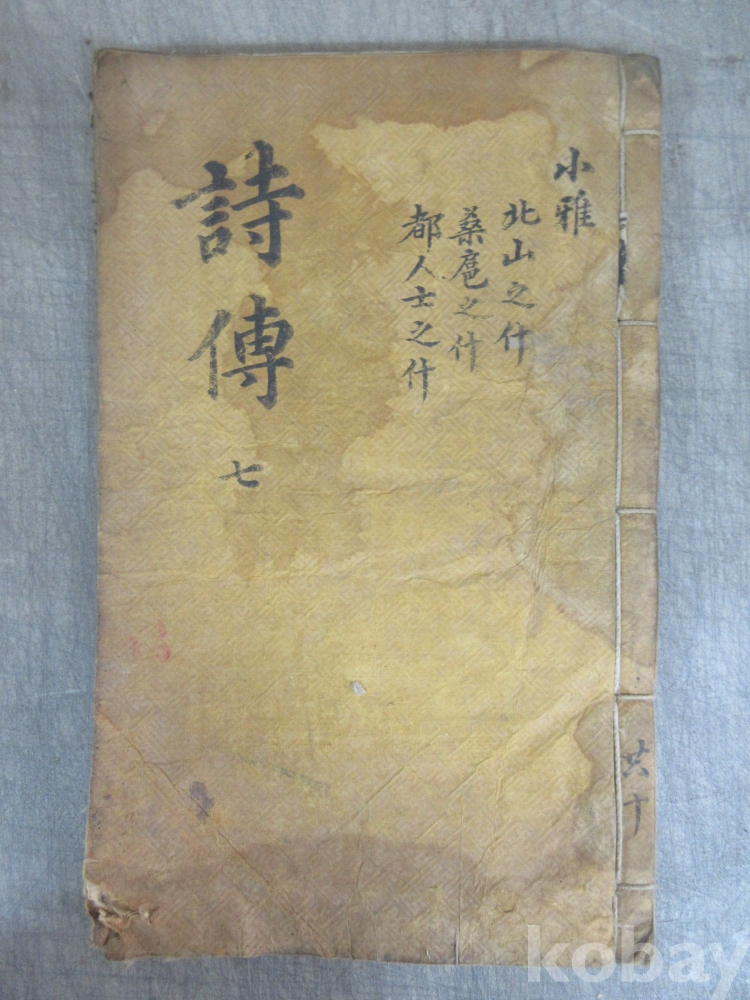 小雅
北山之什
桑扈之什
都人士之什
詩傳
七
共十
kobay